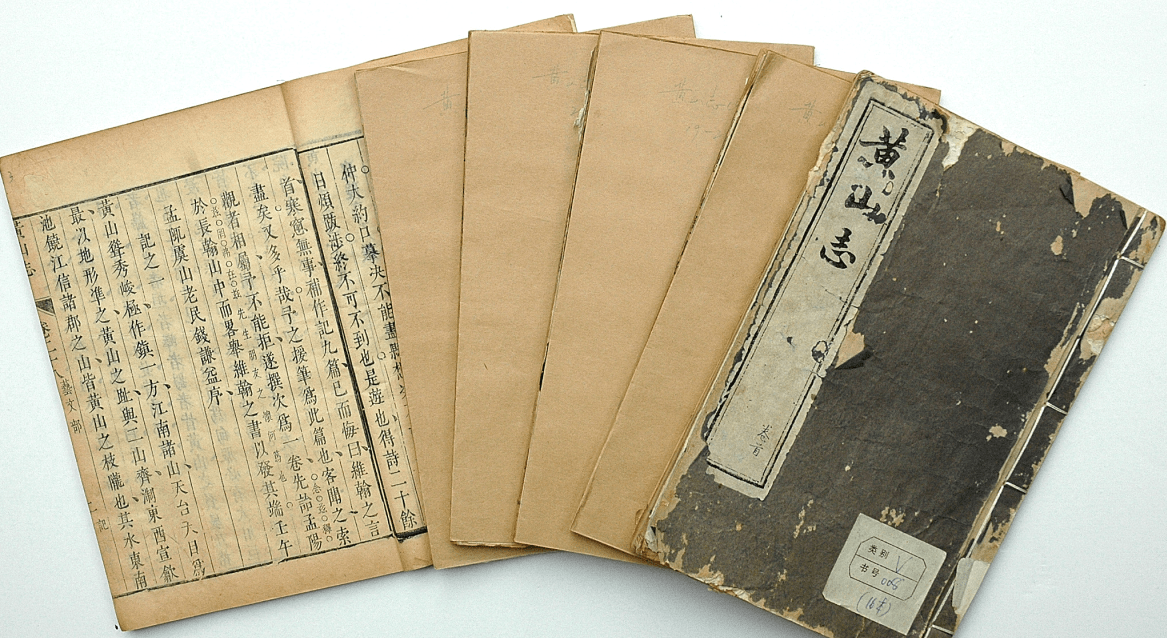 仲大約口摹决不能盡
日煩跋涉終不可不到也是遊也得詩二十餘
首寒窓無事補作記九篇已而悔曰維翰之言
盡矣又多乎哉予之援筆爲此篇也客聞之索
觀者相屬予不能拒遂撰次爲一卷先詒孟陽
於長翰山中而畧舉維翰之書以發其端壬午
孟陬虞山老民錢謙益序
記之一
黃山聳秀峻極作鎮一方江南諸山天台天目爲
最以地形準之黃山之趾與二山齊淛東西宣歙
池饒江信諸郡之山皆黃山之枝隴也其水東南
黃山志 藝文部 一 記
黄
黄山志
19-
黄
黄山志
卷首
类别 V
书号 005
(16本)